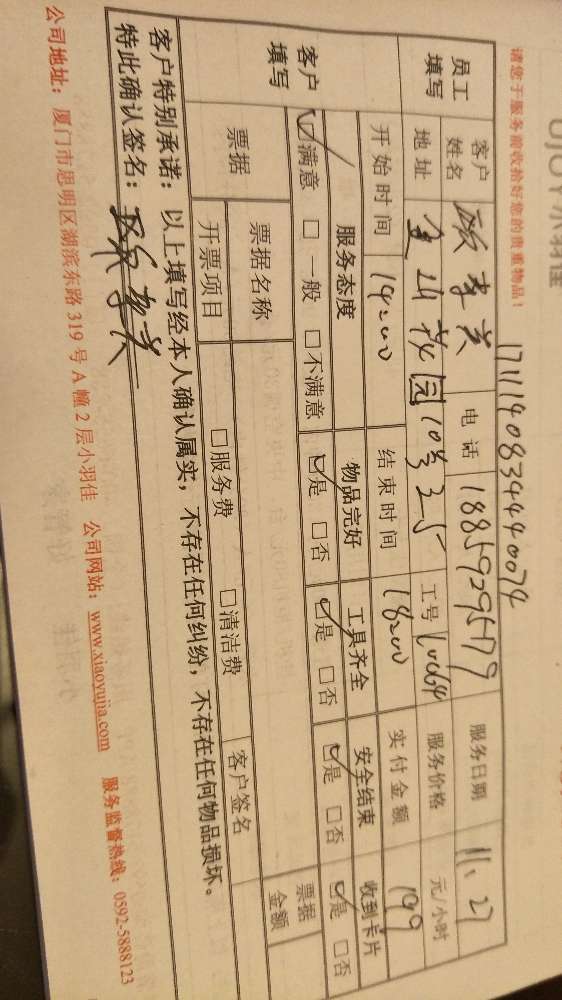 UJOY小羽佳
请您于服务前收拾好您的贵重物品!
1711140834440074
员工填写 客户姓名 电话 18859295179 服务日期 11.27
地址 金山花园10号325 工号 服务价格 元/小时
客户填写 开始时间 14:00 结束时间 18:00 实付金额 199
服务态度 物品完好 工具齐全 安全结束 收到卡片
☑满意 □一般 □不满意 ☑是 □否 ☑是 □否 ☑是 □否 ☑是 □否
票据 票据名称 客户签名 票据金额
开票项目 □服务费 □清洁费
客户特别承诺:以上填写经本人确认属实,不存在任何纠纷,不存在任何物品损坏。
特此确认签名:
公司地址:厦门市思明区湖滨东路319号A幢2层小羽佳 公司网站:www.xiaoyujia.com 服务监督热线:0592-5888123